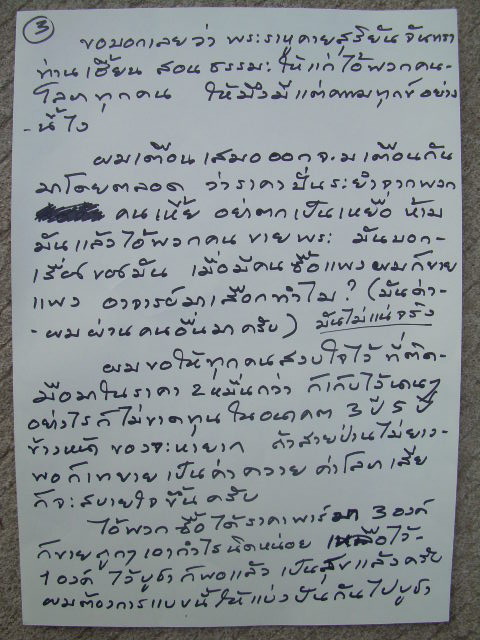 3
ขอบอกเลยว่า พระราหูคายสุริยันจันทรา
ท่านเฮี้ยน สอนธรรมะ ให้แก่ไอ้พวกคน-
โลภทุกคน ให้มึงมีแต่ความทุกข์อย่าง
-นี้ไง
ผมเตือนเสมอออกจะมาเตือนกัน
มาโดยตลอด ว่าราคาปั่นระยำจากพวก
คนเหี้ย อย่าตกเป็นเหยื่อ ห้าม
มันแล้วไอ้พวกคนขายพระ มันบอก-
เรื่องของมัน เมื่อมีคนซื้อแพงผมก็ขาย
แพง อาจารย์มาเสือกทำไม? (มันด่า-
-ผมผ่านคนอื่นมาครับ) มันไม่แน่จริง
ผมขอให้ทุกคนสงบใจไว้ ที่ติด-
มือมาในราคา 2 หมื่นกว่า ก็เก็บไว้นานๆ
อย่างไรก็ไม่ขาดทุน ในอนาคต 3 ปี 5 ปี
ข้างหน้า ของจะหายาก ถ้าสายป่านไม่ยาว-
พอก็เทขาย เป็นค่าควาย ค่าโลภ เสีย
ก็จะสบายใจขึ้นครับ
ไอ้พวกซื้อได้ราคาพาร์ 3 องค์
ก็ขายถูกๆ เอากำไรนิดหน่อย เหลือไว้-
1 องค์ ไว้บูชา ก็พอแล้ว เป็นสุขแล้วครับ
ผมต้องการแบบนี้ให้แบ่งปันกันไปบูชา